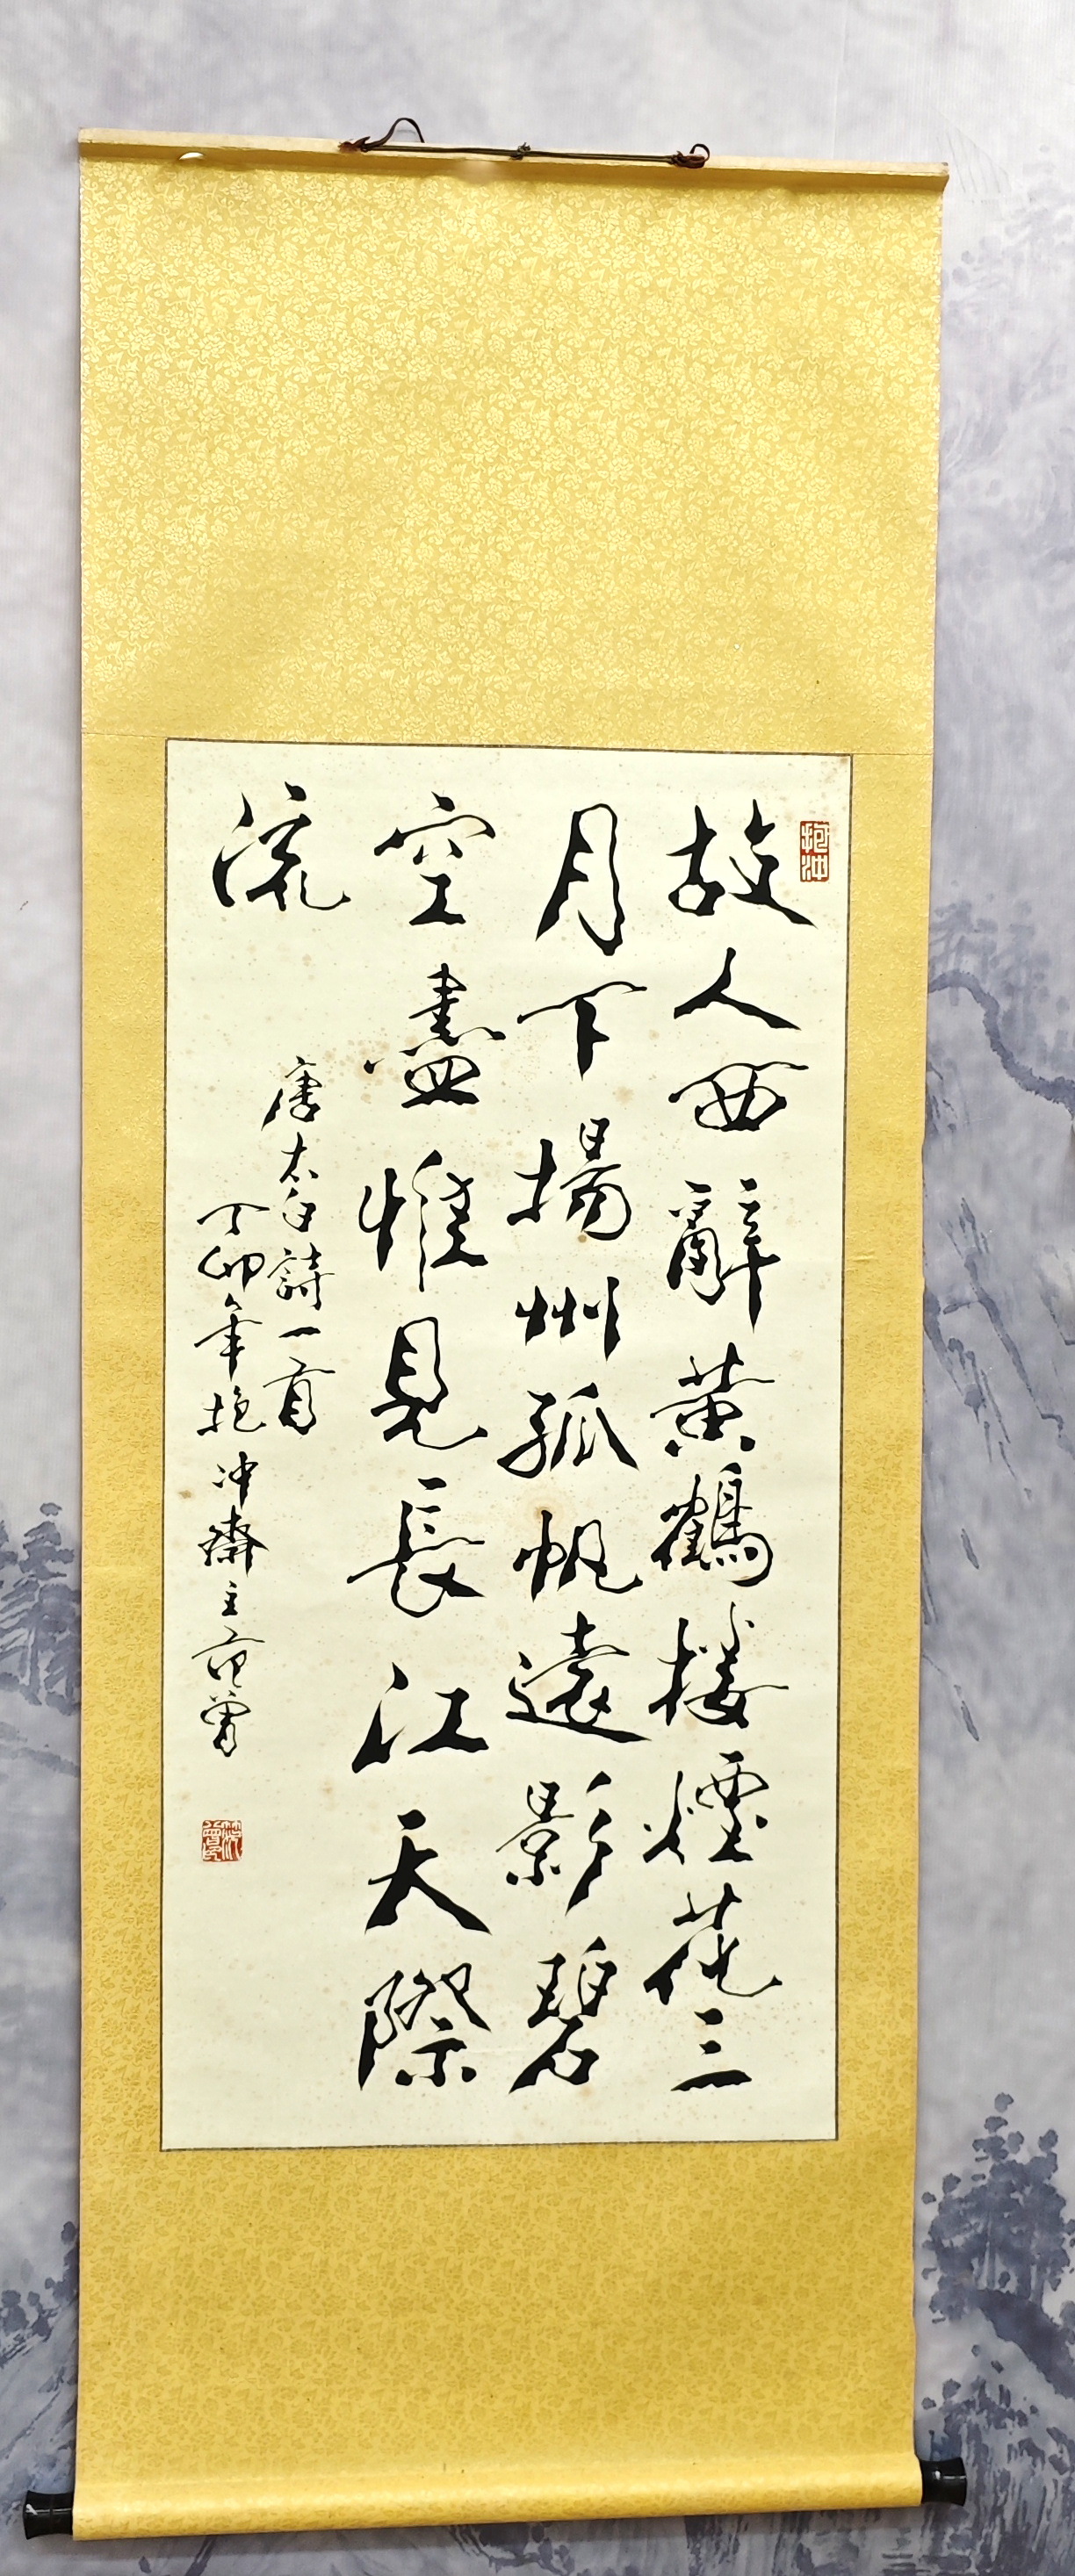 抱冲
故人西辭黃鶴樓煙花三
月下揚州孤帆遠影碧
空盡惟見長江天際
流
唐太白詩一首
丁卯年抱冲齋主范曾